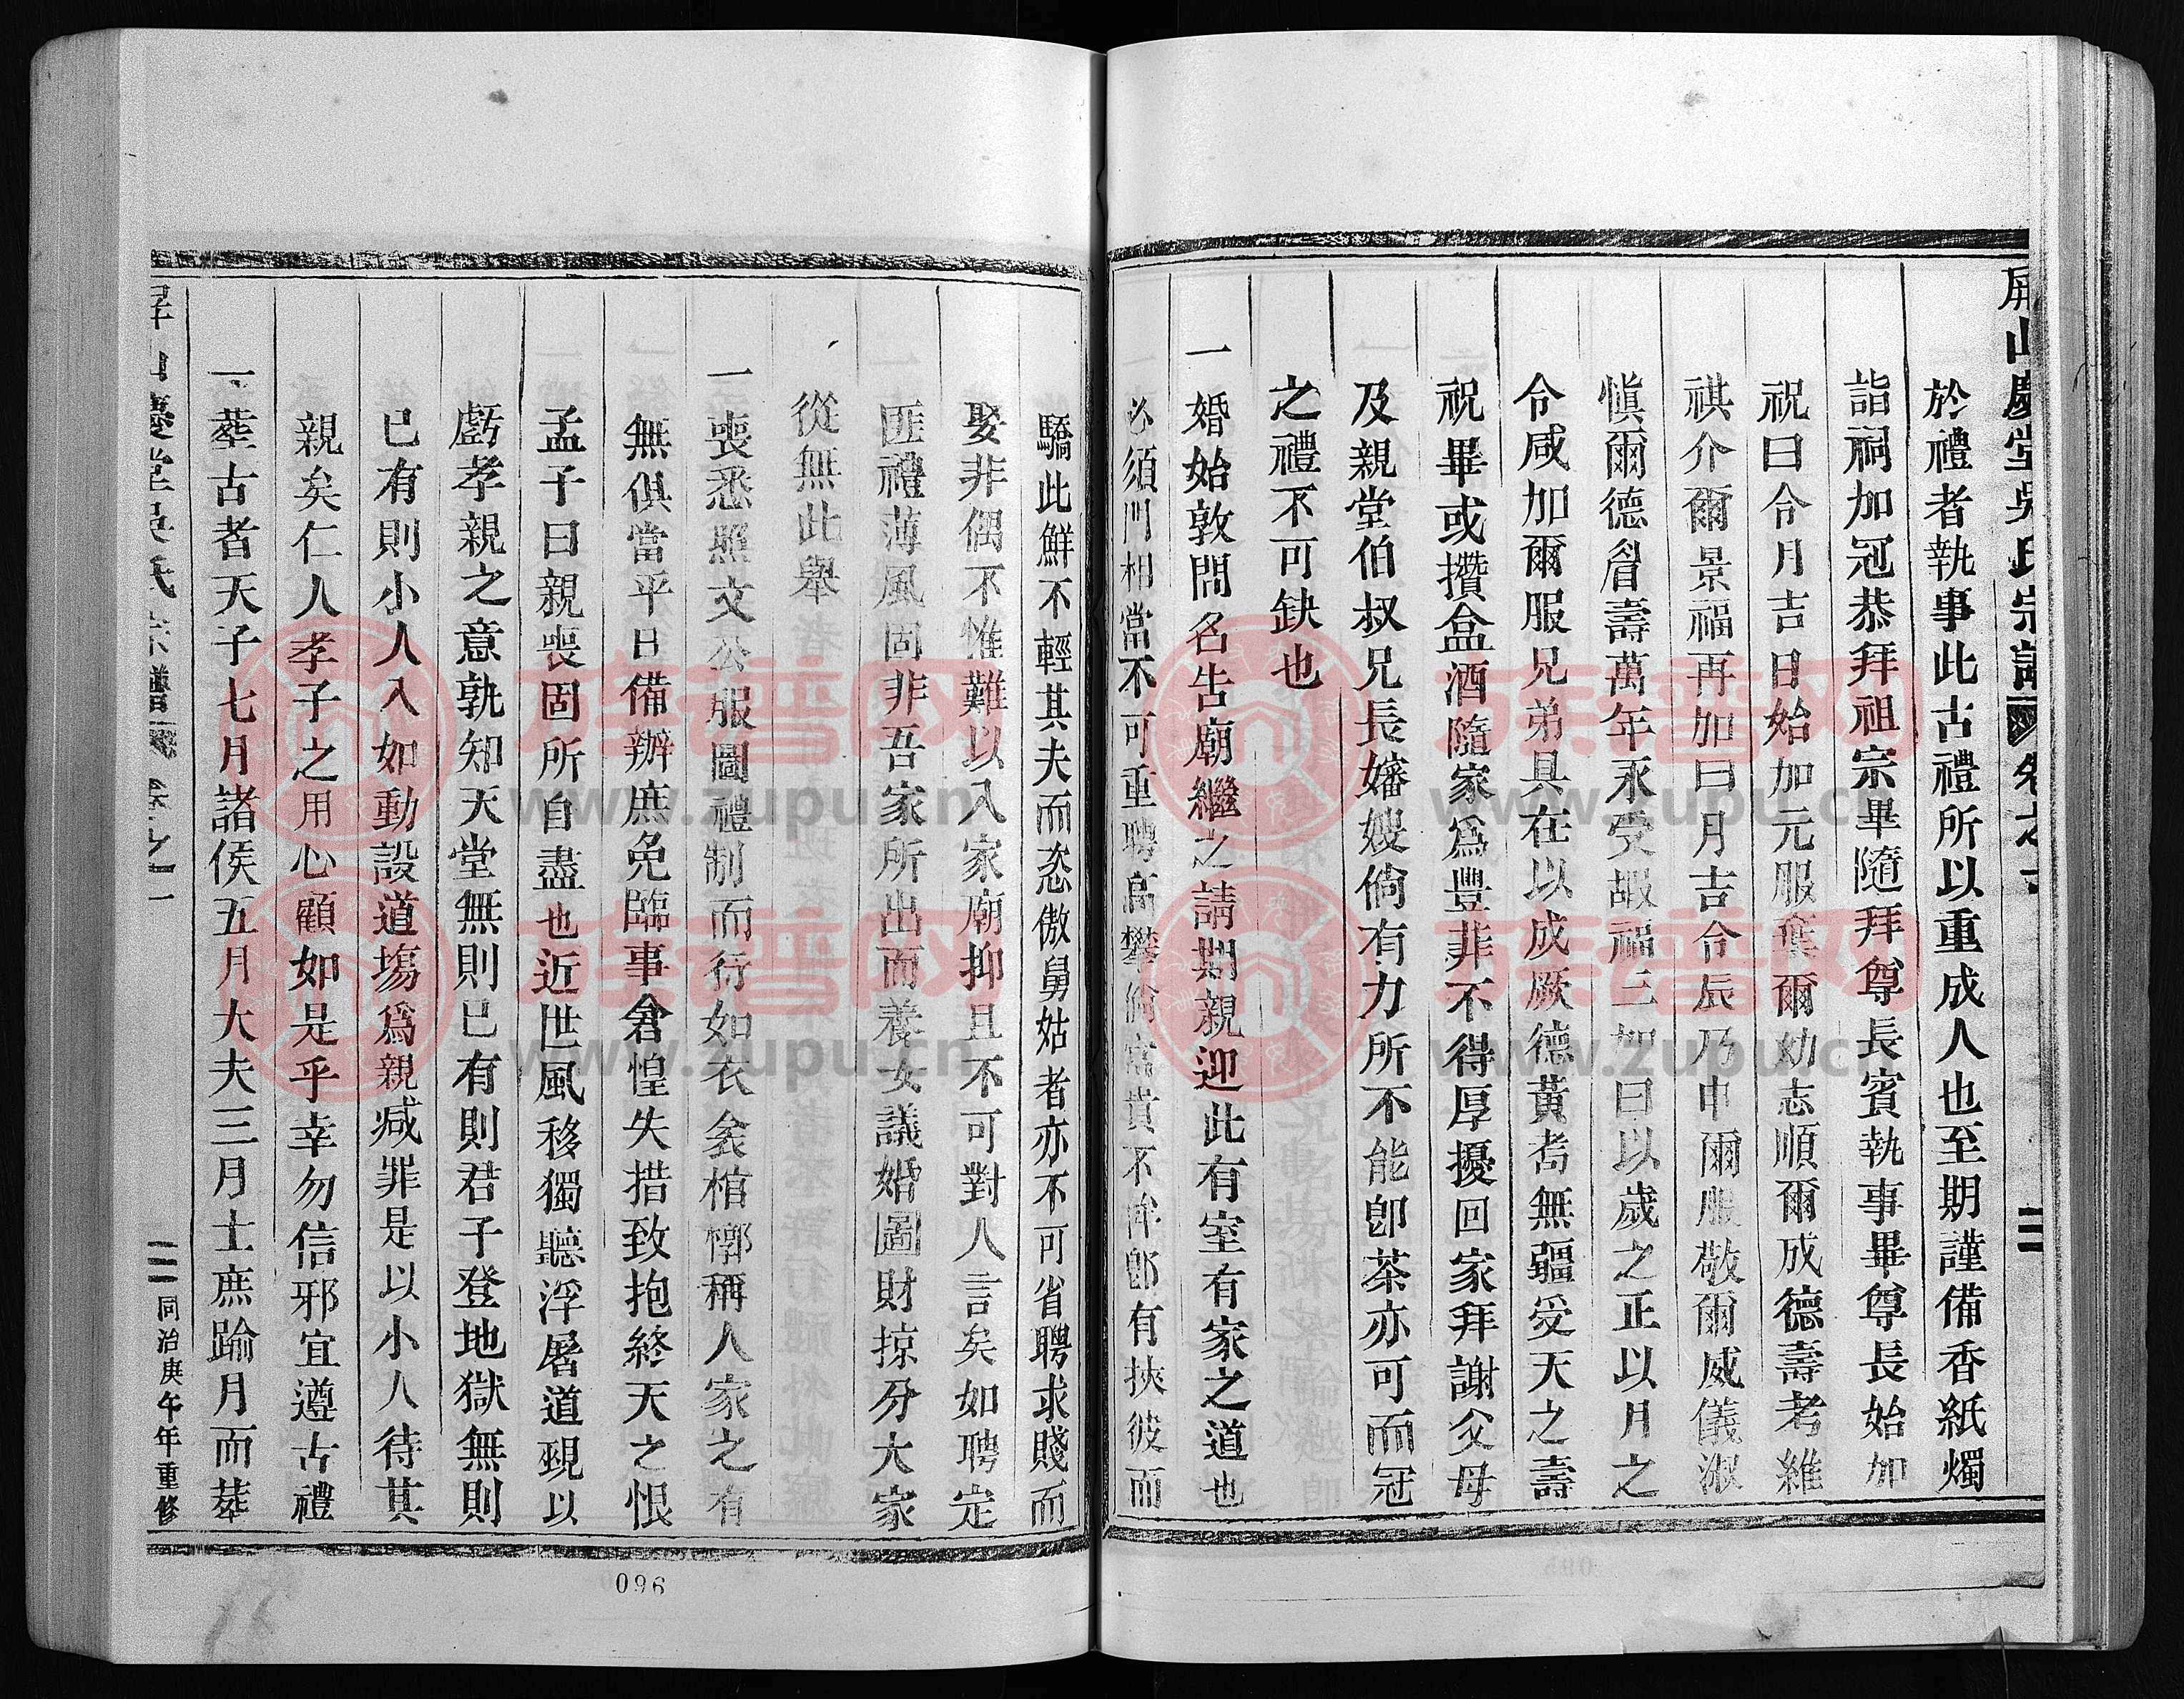 屏山慶堂吳氏宗譜 卷之一 二
於禮者執事此古禮所以重成人也至期謹備香紙燭
詣祠加冠恭拜祖宗畢隨拜尊長賓執事畢尊長始加
祝曰令月吉日始加元服棄爾幼志順爾成德壽考維
祺介爾景福再加曰月吉令辰乃申爾服敬爾威儀淑
愼爾德眉壽萬年永受嘏福三加曰以歲之正以月之
令咸加爾服兄弟具在以成厥德黃耇無疆受天之壽
祝畢或攢盒酒隨家爲豐菲不得厚擾回家拜謝父母
及親堂伯叔兄長嬸嫂倘有力所不能卽茶亦可而冠
之禮不可缺也
一婚始敦問名告廟繼之請期親迎此有室有家之道也
必須門相當不可重聘高攀倘富貴不侔卽有挾彼而
驕此鮮不輕其夫而恣傲舅姑者亦不可省聘求賤而
娶非偶不惟難以入家廟抑且不可對人言矣如聘定
匪禮薄風固非吾家所出而養女議婚圖財掠分大家
從無此舉
一喪悉照文公服圖禮制而行如衣衾棺槨稱人家之有
無俱當平日備辦庶免臨事倉惶失措致抱終天之恨
孟子曰親喪固所自盡也近世風移獨聽浮屠道覡以
虧孝親之意孰知天堂無則已有則君子登地獄無則
已有則小人入如動設道塲爲親減罪是以小人待其
親矣仁人孝子之用心顧如是乎幸勿信邪宜遵古禮
一塟古者天子七月諸侯五月大夫三月士庶踰月而塟
屏山慶堂吳氏宗譜 卷之一 三 同治庚午年重修
096
族譜网
www.zupu.cn
族譜网
www.zupu.cn
族譜网
www.zupu.cn
族譜网
www.zupu.cn